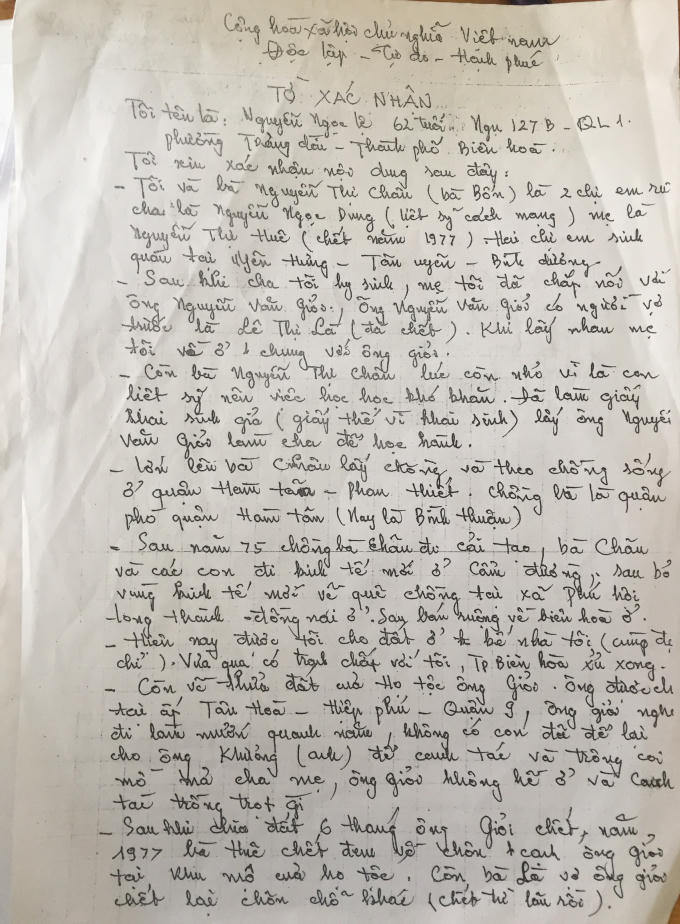 Cộng hoà xã hội chủ nghĩa Việt nam
Độc lập - Tự do - Hạnh phúc
TỜ XÁC NHẬN
Tôi tên là: Nguyễn Ngọc lệ 62 tuổi. Ngụ 127 B - QL 1.
phường Trảng dài - Thành phố Biên hoà.
Tôi xin xác nhận nội dung sau đây:
- Tôi và bà Nguyễn Thị Chẩn (bà Bốn) là 2 chị em
cha là Nguyễn Ngọc Dung (liệt sỹ cách mạng) mẹ là
Nguyễn Thị Huê (chết năm 1977). Hai chị em sinh
quán tại Uyên Hưng - Tân uyên - Bình dương
- Sau khi cha tôi hy sinh, mẹ tôi đã chấp nối với
ông Nguyễn Văn Giỏi, Ông Nguyễn Văn Giỏi có người vợ
trước là Lê Thị Là (đã chết). Khi lấy nhau mẹ
tôi về ở chung với ông giỏi.
- Còn bà Nguyễn Thị Chẩn lúc còn nhỏ vì là con
liệt sỹ nên việc học học khó khăn. Đã làm giấy
khai sinh giả (giấy thế vì khai sinh) lấy ông Nguyễn
Văn Giỏi làm cha để học hành.
- lớn lên bà lấy chồng và theo chồng sống
ở quận Hàm tân - phan thiết. Chồng bà là quận
phó quận Hàm tân (Nay là Bình thuận)
- Sau năm 75 chồng bà Chẩn đi cải tạo, bà Chẩn
và các con đi kinh tế mới ở Cẩm đường, sau bỏ
vùng kinh tế mới về quê chồng tại xã Phú hội
long thành - đồng nai ở. Sau bán ruộng về biên hoà ở.
- Hiện nay được tôi cho đất ở kế bên nhà tôi (cùng địa
chỉ). Vừa qua có tranh chấp với tôi, Tp Biên hoà xử xong.
- Còn về thửa đất của Họ tộc ông Giỏi. Ông được ch
tại ấp Tân Hoà - Hiệp phú - Quận 9, ông giỏi nghề
đi làm mướn quanh năm, không có con đã để lại
cho ông Khưởng (anh) để canh tác và trông coi
mồ mả cha mẹ, ông giỏi không hề ở và Canh
tác trồng trọt gì
- Sau khi chia đất 6 tháng ông Giỏi chết, năm
1977 bà Huê chết đem về chôn cạnh ông giỏi
tại khu mộ của họ tộc. Còn bà Là vợ ông giỏi
chết lại chôn chỗ khác (chết từ lâu rồi).